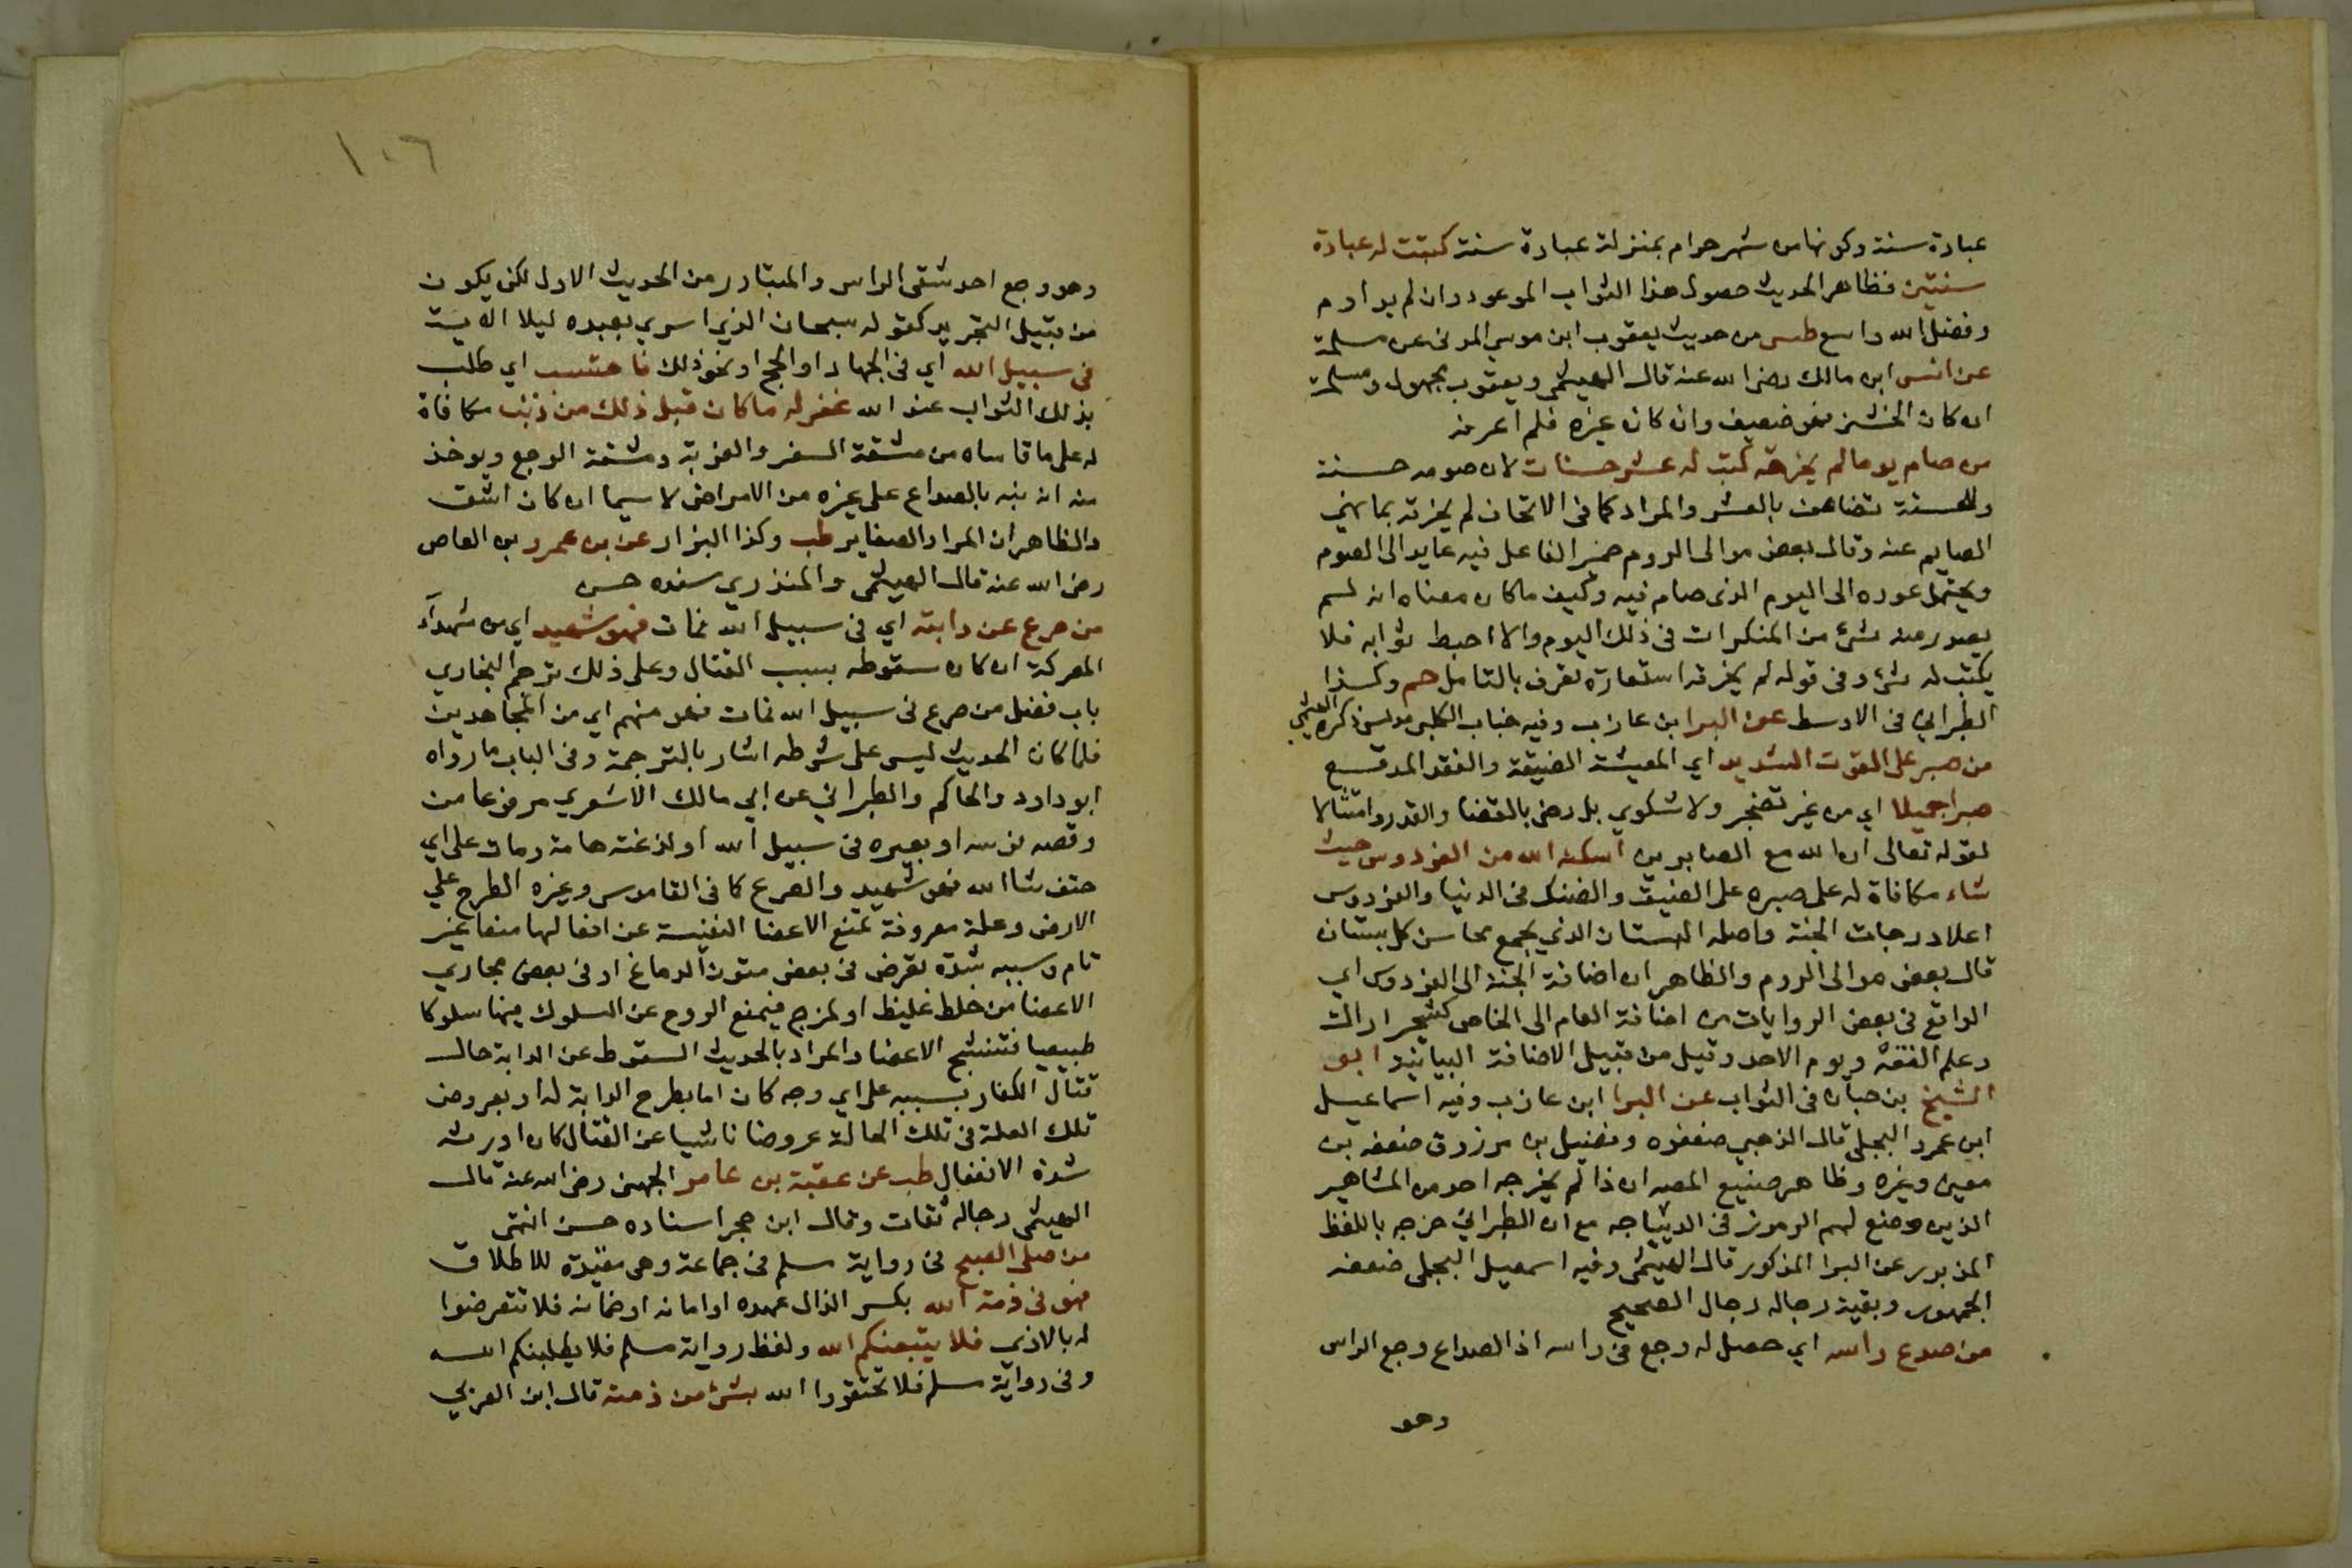 عبادة سنة وكونها من شهر حرام بمنزلة عبادة سنة كتبت له عبادة
سنتين فظاهر الحديث حصول هذا الثواب الموعود وان لم يداوم
وفضل الله واسع طس من حديث يعقوب ابن موسي المدني عن مسلمة
عن انس ابن مالك رضي الله عنه قال الهيثمي ويعقوب مجهول ومسلمة
ان كان الخشني فهو ضعيف وان كان غيره فلم اعرفه
من صام يوما لم يخرقه كتب له عشر حسنات لان صومه حسنة
والحسنة تضاعف بالعشر والمراد كما في الاتحاف لم يخرقه بما نهي
الصايم عنه وقال بعض موالى الروم ضمير الفاعل فيه عايد الى الصوم
ويحتمل عوده الى اليوم الذي صام فيه وكيف ماكان معناه انه لم
يصدر منه شئ من المنكرات في ذلك اليوم والا احبط ثوابه فلا
يكتب له شئ وفي قوله لم يخرقه استعارة تعرف بالتامل حم وكذا
الطبراني في الاوسط عن البرا بن عازب وفيه جناب الكلبي مدلس ذكره الهيثمي
من صبر على القوت الشديد اي المعيشة الضيقة والفقر المدقع
صبرا جميلا اي من غير تضجر ولا شكوي بل رضي بالقضا والقدر وامتثالا
لقوله تعالى ان الله مع الصابرين اسكنه الله من الفردوس حيث
شاء مكافاة له على صبره على الضيق والضنك في الدنيا والفردوس
اعلا درجات الجنة واصله البستان الذي يجمع محاسن كل بستان
قال بعض موالى الروم والظاهر ان اضافة الجنة الى الفردوس اي
الواقع في بعض الروايات من اضافة العام الى الخاص كشجر اراك
وعلم الفقه ويوم الاحد وقيل من قبيل الاضافة البيانيه ابو
الشيخ بن حبان في الثواب عن البرا ابن عازب وفيه اسماعيل
ابن عمرو البجلي قال الذهبي ضعفوه وفضيل بن مرزوق ضعفه بن
معين وغيره وظاهر صنيع المصه ان ذا لم يخرجه احد من المشاهير
الذين وضع لهم الرموز في الديباجه مع ان الطبراني خرجه باللفظ
المزبور عن البرا المذكور قال الهيثمي وفيه اسمعيل البجلي ضعفه
الجمهور وبقية رجاله رجال الصحيح
من صدع راسه اي حصل له وجع في راسه اذ الصداع وجع الراس
وهو
١٠٦
وهو وجع احد شقي الراس والمتبادر من الحديث الاول لكن يكون
من قبيل التجريد كقوله سبحان الذي اسري بعبده ليلا الايـة
في سبيل الله اي في الجهاد او الحج او نحو ذلك فاحتسب اي طلب
بذلك الثواب عند الله غفر له ماكان قبل ذلك من ذنب مكافاة
له على ما قاساه من مشقة السفر والغربة ومشقة الوجع ويوخذ
منه انه نبه بالصداع على غيره من الامراض لا سيما ان كان اشق
والظاهر ان المراد الصغاير طب وكذا البزار عن بن عمرو بن العاص
رضي الله عنه قال الهيثمي والمنذري سنده حسن
من صرع عن دابته اي في سبيل الله فمات فهو شهيد اي من شهدآء
المعركة ان كان سقوطه بسبب القتال وعلى ذلك ترجم البخاري
باب فضل من صرع في سبيل الله فمات فهو منهم اي من المجاهدين
فلما كان الحديث ليس على شرطه اشار بالترجمة وفي الباب ما رواه
ابو داود والحاكم والطبراني عن ابي مالك الاشعري مرفوعا من
وقصه فرسه او بعيره في سبيل الله او لدغته هامة ومات على اي
حتف شاالله فهو شهيد والصرع كما في القاموس وغيره الطرح علي
الارض وعلة معروفة تمنع الاعضا النفيسة عن افعالها منعا غير
تام وسببه شدة تعرض في بعض متون الدماغ او في بعض مجاري
الاعضا من خلط غليظ او لمزج فيمنع الروح عن السلوك فيها سلوكا
طبيعيا فتتشنج الاعضا والمراد بالحديث السقوط عن الدابة حال
قتال الكفار بسببه على اي وجه كان اما بطرح الدابة له او بعروض
تلك العلة في تلك الحالة عروضا ناشيا عن القتال كان اورثه
شدة الانفعال طب عن عقبة بن عامر الجهني رضي الله عنه قال
الهيثمي رجاله ثقات وقال ابن حجر اسناده حسن انتهى
من صلى الصبح في رواية مسلم في جماعة وهي مقيدة للاطلاق
فهو في ذمة الله بكسر الذال عهده او امانه او ضمانه فلا تتعرضوا
له بالاذي فلا يتبعنكم الله ولفظ رواية مسلم فلا يطلبنكم الله
وفي رواية مسلم فلا تحقروا الله بشئ من ذمته قال ابن العربي